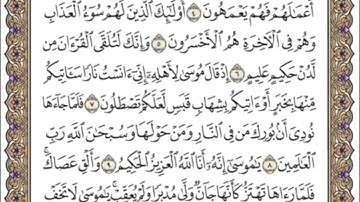 أَعْمَـٰلَهُمْ فَهُمْ يَعْمَهُونَ ٤ أُو۟لَـٰٓئِكَ ٱلَّذِينَ لَهُمْ سُوٓءُ ٱلْعَذَابِ
وَهُمْ فِى ٱلْـَٔاخِرَةِ هُمُ ٱلْأَخْسَرُونَ ٥ وَإِنَّكَ لَتُلَقَّى ٱلْقُرْءَانَ مِن
لَّدُنْ حَكِيمٍ عَلِيمٍ ٦ إِذْ قَالَ مُوسَىٰ لِأَهْلِهِۦٓ إِنِّىٓ ءَانَسْتُ نَارًا سَـَٔاتِيكُم
مِّنْهَا بِخَبَرٍ أَوْ ءَاتِيكُم بِشِهَابٍ قَبَسٍ لَّعَلَّكُمْ تَصْطَلُونَ ٧ فَلَمَّا جَآءَهَا
نُودِىَ أَنۢ بُورِكَ مَن فِى ٱلنَّارِ وَمَنْ حَوْلَهَا وَسُبْحَـٰنَ ٱللَّهِ رَبِّ
ٱلْعَـٰلَمِينَ ٨ يَـٰمُوسَىٰٓ إِنَّهُۥٓ أَنَا ٱللَّهُ ٱلْعَزِيزُ ٱلْحَكِيمُ ٩ وَأَلْقِ عَصَاكَ ۚ
فَلَمَّا رَءَاهَا تَهْتَزُّ كَأَنَّهَا جَآنٌّ وَلَّىٰ مُدْبِرًا وَلَمْ يُعَقِّبْ ۚ يَـٰمُوسَىٰ لَا تَخَفْ